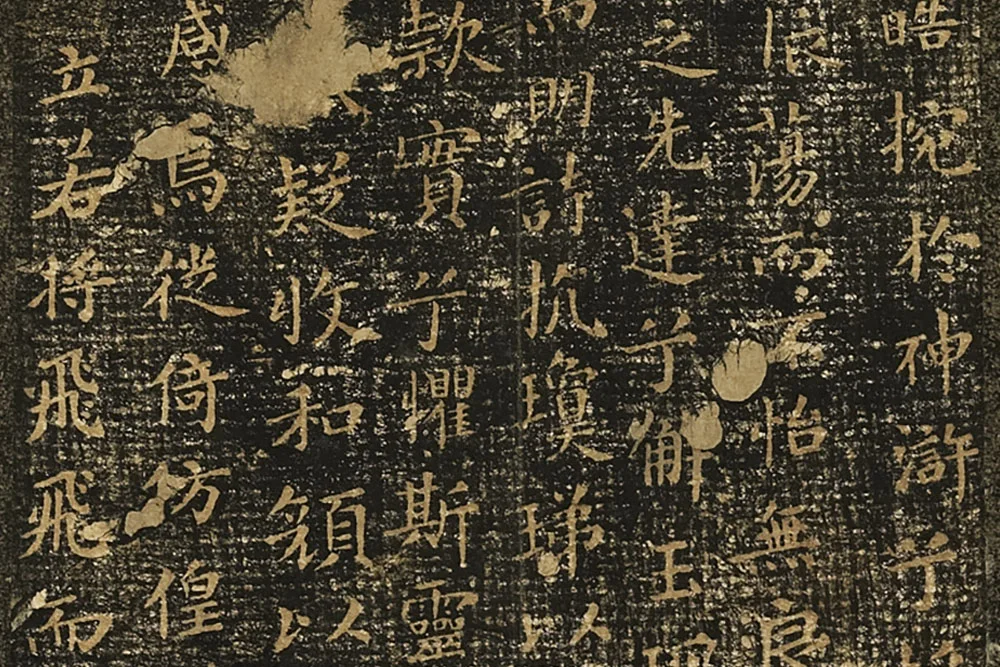 皓捥於神滸兮
蕩而不怡無良
之先達兮解玉
而明詩抗瓊珶以
款實兮懼斯靈
疑收和顏以
感焉徙倚仿偟
立若將飛飛而